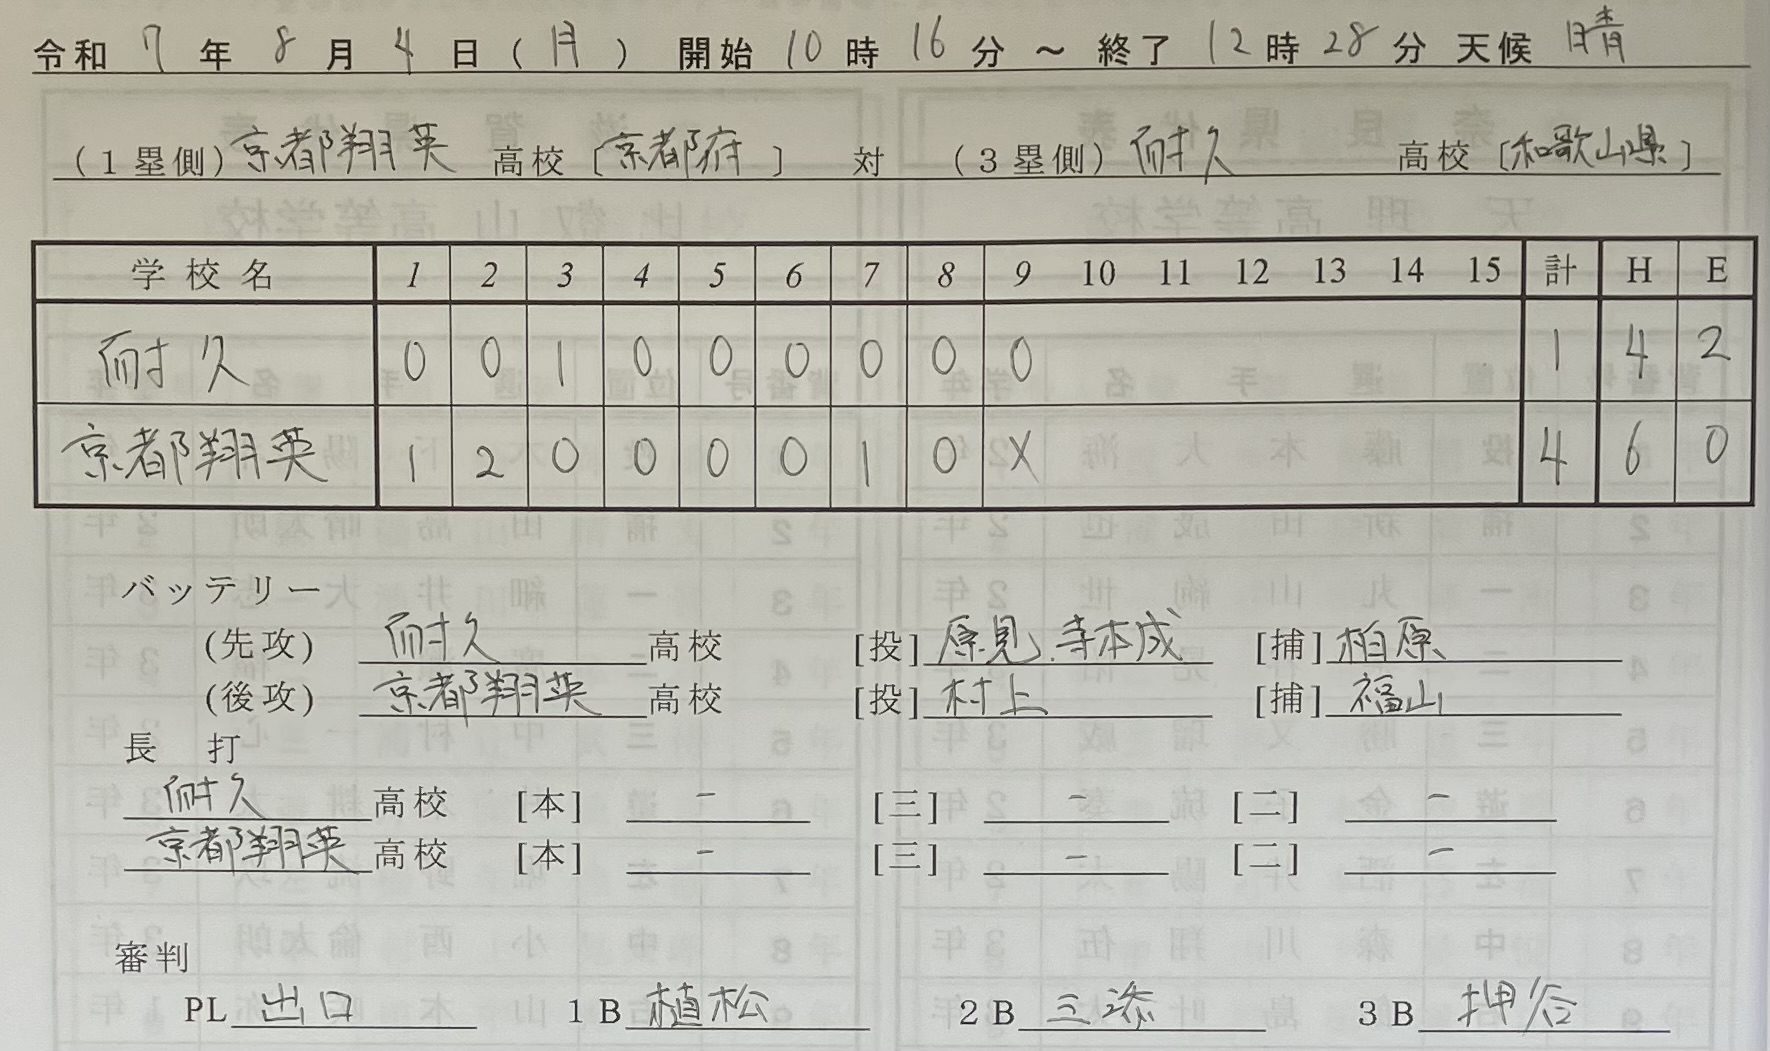 令和 7 年 8 月 4 日 ( 月 ) 開始 10 時 16 分 ～ 終了 12 時 28 分 天候 晴
(1塁側) 京都翔英 高校 〔京都府〕 対 (3塁側) 耐久 高校 〔和歌山県〕
学校名 1 2 3 4 5 6 7 8 9 10 11 12 13 14 15 計 H E
耐久 0 0 1 0 0 0 0 0 0 1 4 2
京都翔英 1 2 0 0 0 0 1 0 X 4 6 0
バッテリー
(先攻) 耐久 高校 [投] 原見.寺本成 [捕] 柏原
(後攻) 京都翔英 高校 [投] 村上 [捕] 福山
長打
耐久 高校 [本] - [三] - [二] -
京都翔英 高校 [本] - [三] - [二] -
審判
PL 出口 1B 植松 2B 三添 3B 押谷